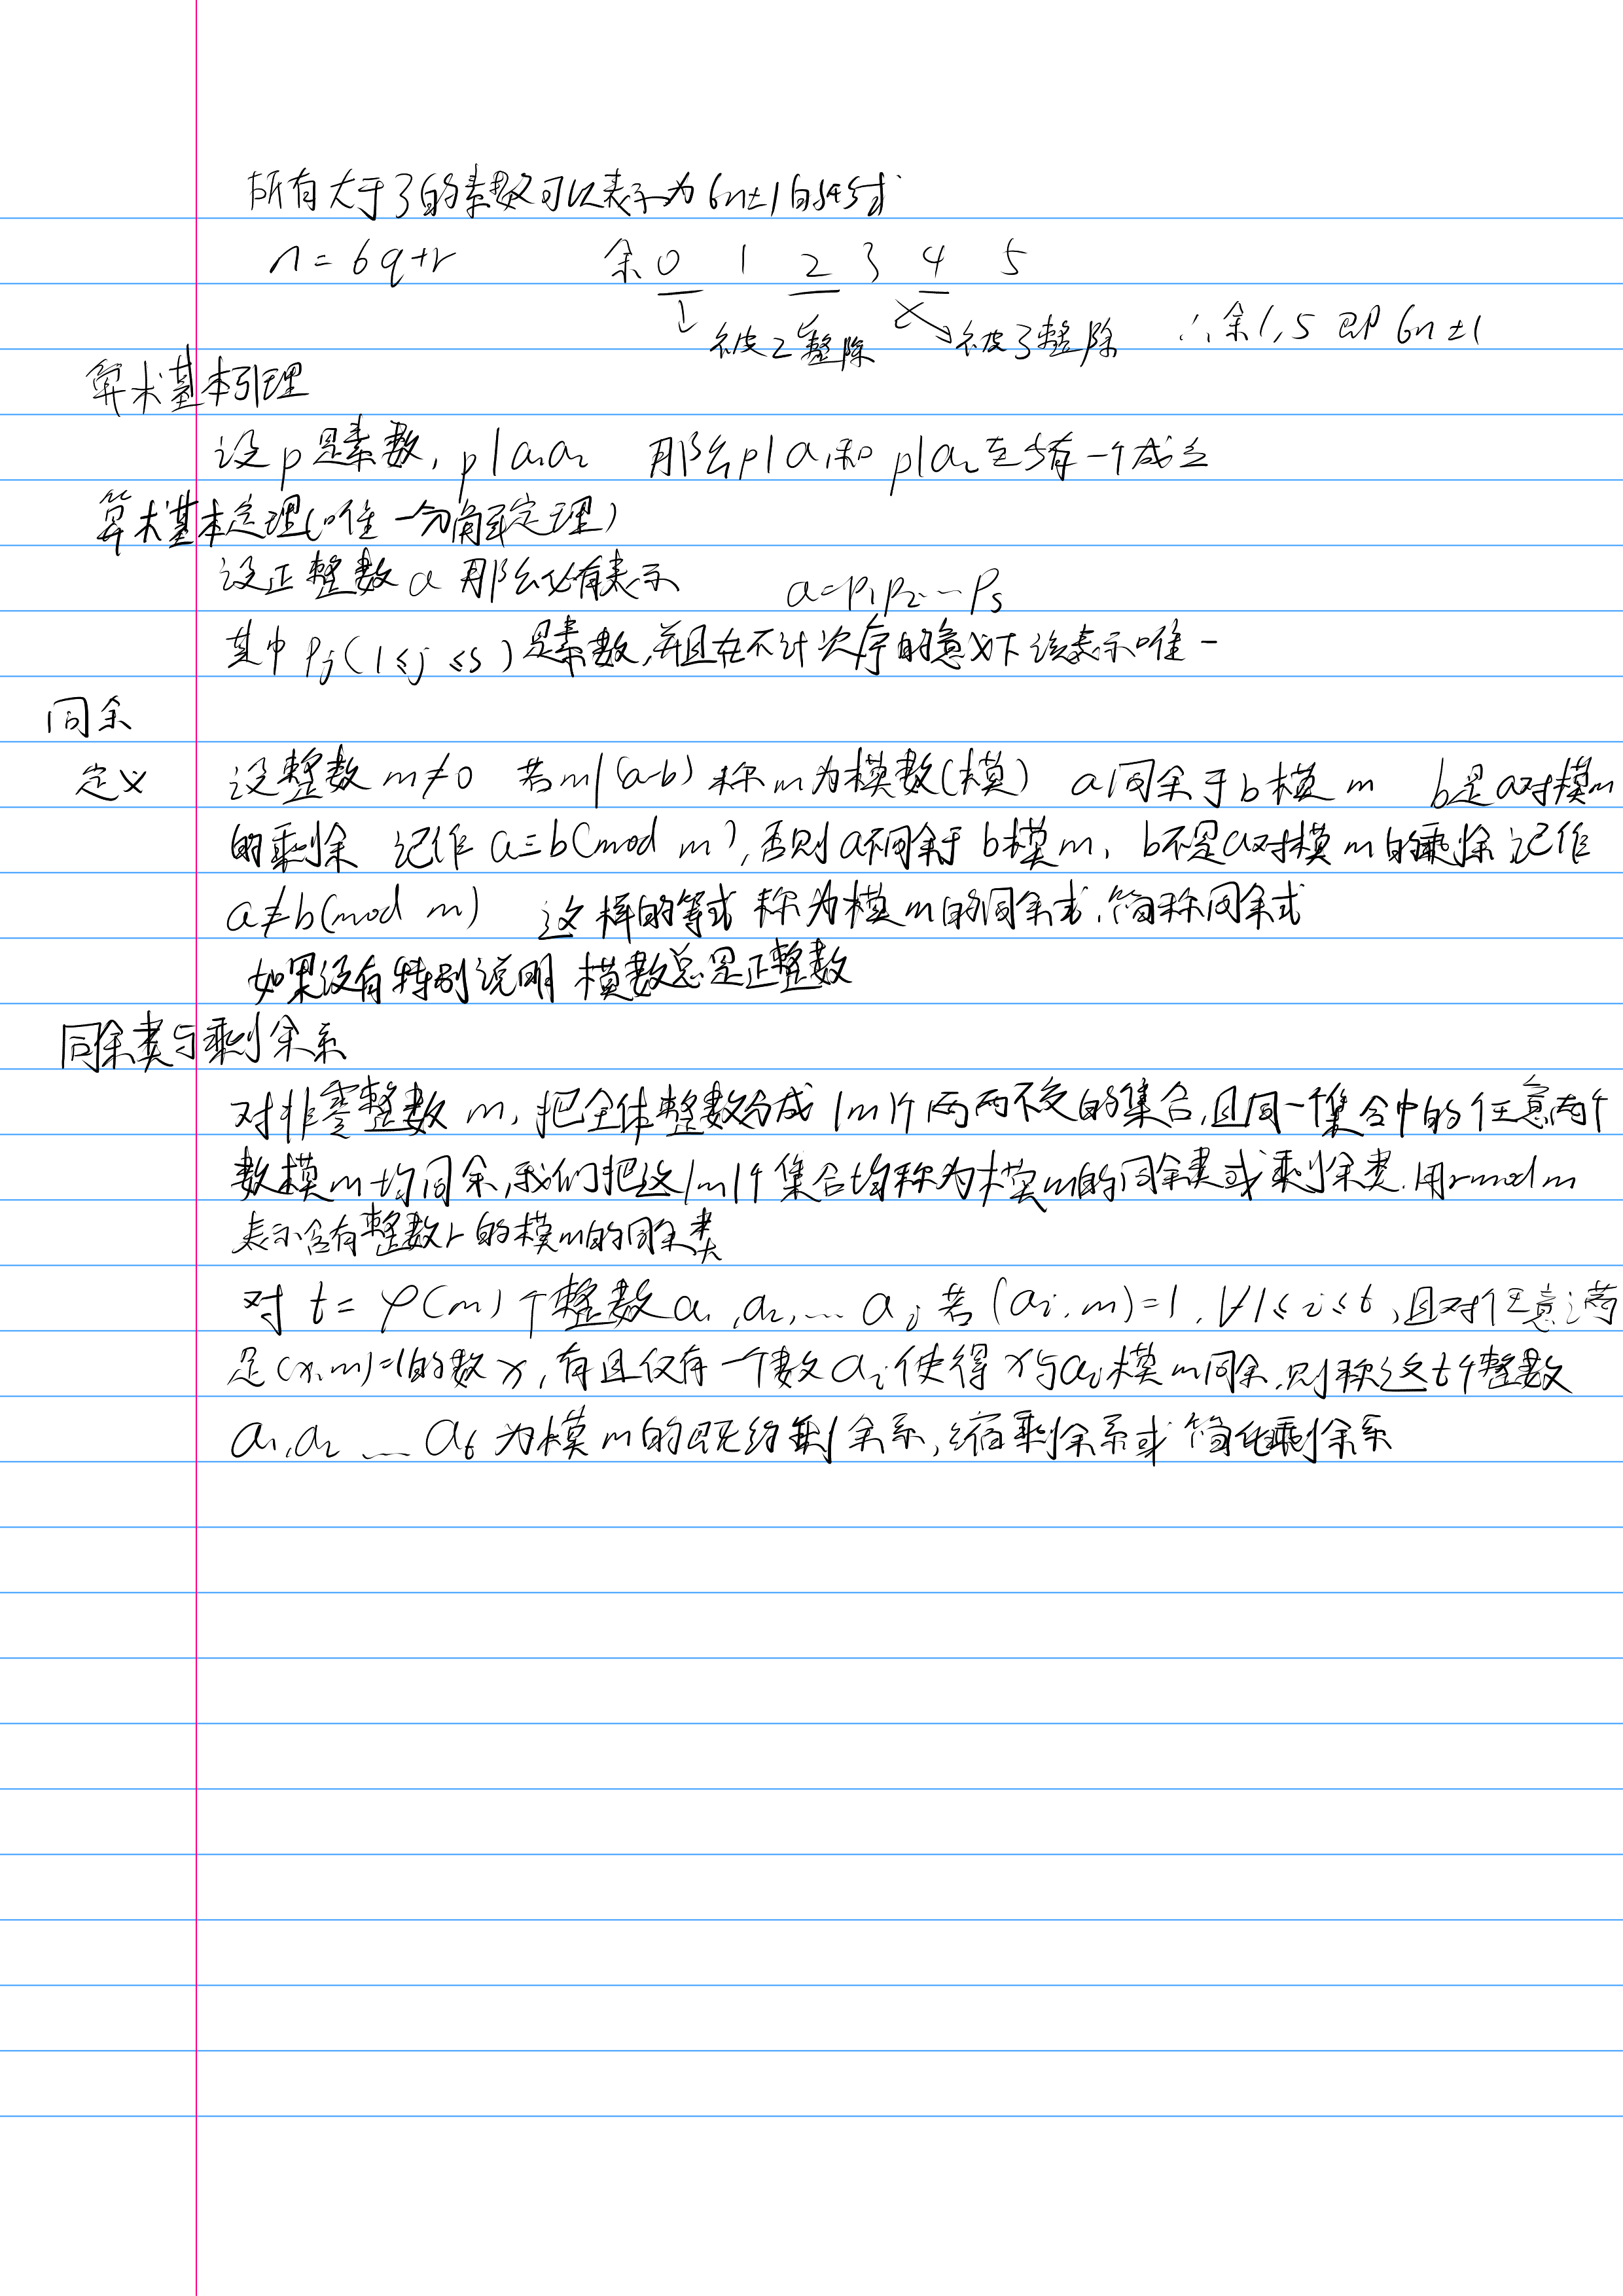 所有大于3的素数可以表示为6n±1的形式
n=6q+r 余0 1 2 3 4 5
被2整除 被3整除 ∴余1,5即6n±1
算术基本引理
设p是素数,p|a₁a₂ 那么p|a₁和p|a₂至少有一个成立
算术基本定理(唯一分解定理)
设正整数a 那么必有表示 a=p₁p₂…pₛ
其中pⱼ(1≤j≤s)是素数,并且在不计次序的意义下该表示唯一
同余
定义 设整数m≠0 若m|(a-b)称m为模数(模) a同余于b模m b是a对模m
的剩余 记作a≡b(mod m),否则a不同余于b模m,b不是a对模m的剩余记作
a≢b(mod m) 这样的等式称为模m的同余式,简称同余式
如果没有特别说明 模数总是正整数
同余类与剩余系
对非零整数m,把全体整数分成|m|个两两不交的集合,且同一个集合中的任意两个
数模m均同余,我们把这|m|个集合均称为模m的同余类或剩余类.用r mod m
表示含有整数r的模m的同余类
对t=φ(m)个整数a₁,a₂,…aⱼ若(aᵢ,m)=1,∀1≤i≤t,且对任意满
足(x,m)=1的数x,有且仅有一个数aᵢ使得x与aᵢ模m同余.则称这t个整数
a₁,a₂…aₜ为模m的既约剩余系,缩剩余系或简化剩余系